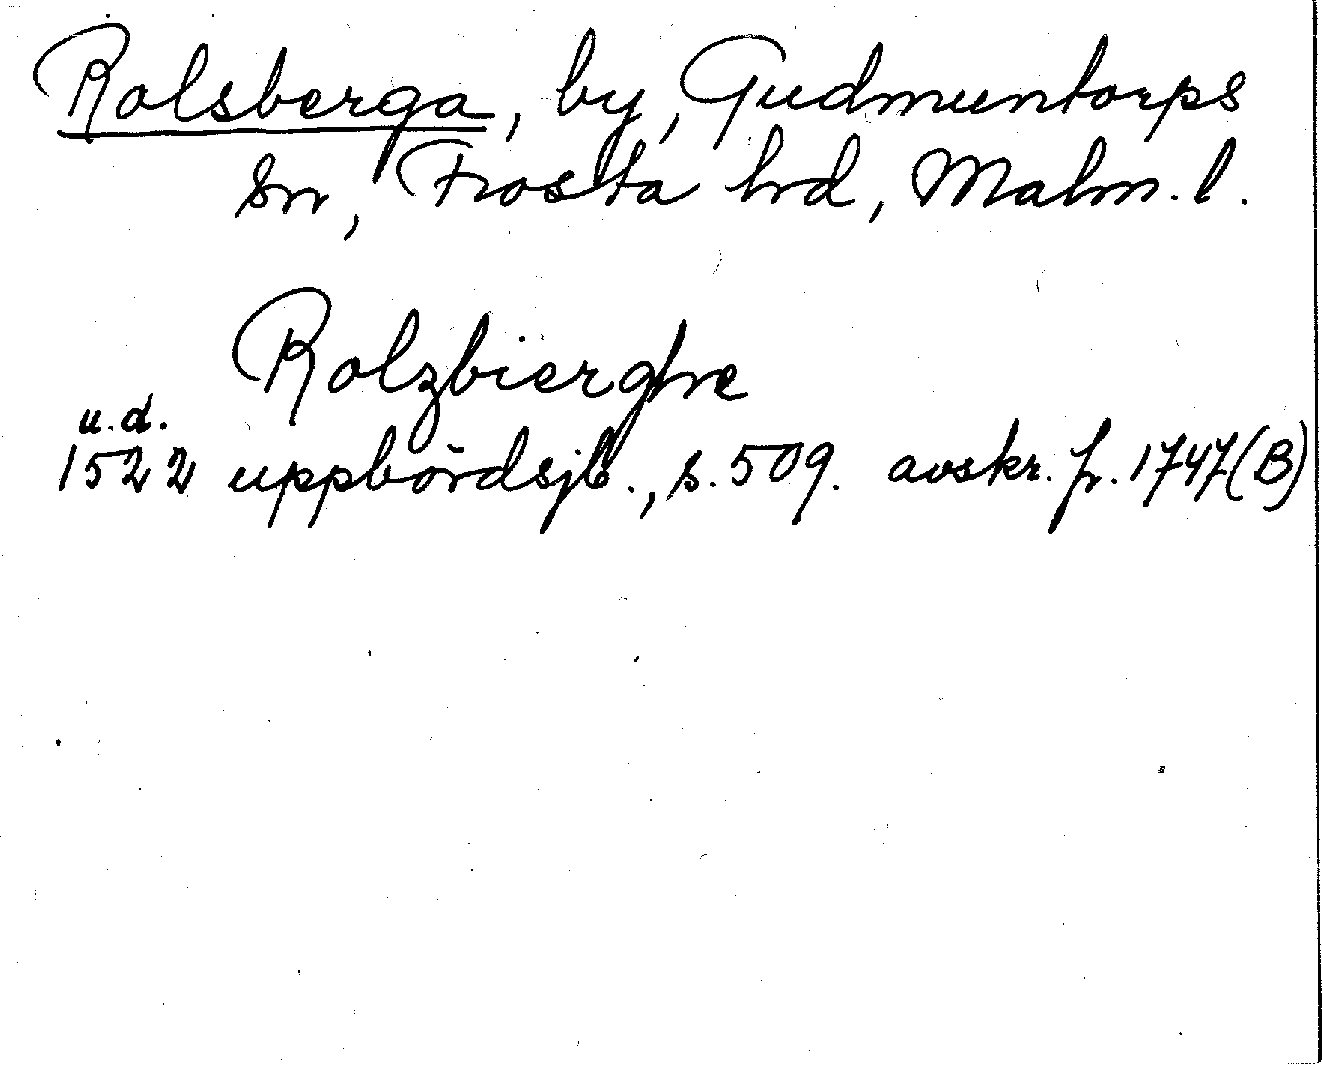 Rolsberga, by, Gudmuntorps
sn, Frosta hrd, Malm. l.
Rolzbierghe
u. d.
1522 uppbördsjb., s. 509. avskr. fr. 1747 (B)